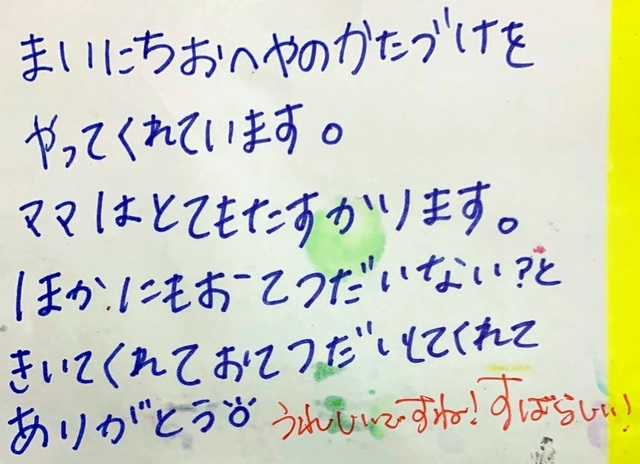 まいにちおへやのかたづけを
やってくれています。
ママはとてもたすかります。
ほかにもおてつだいない?と
きいてくれておてつだいしてくれて
ありがとう
うれしいですね!すばらしい!